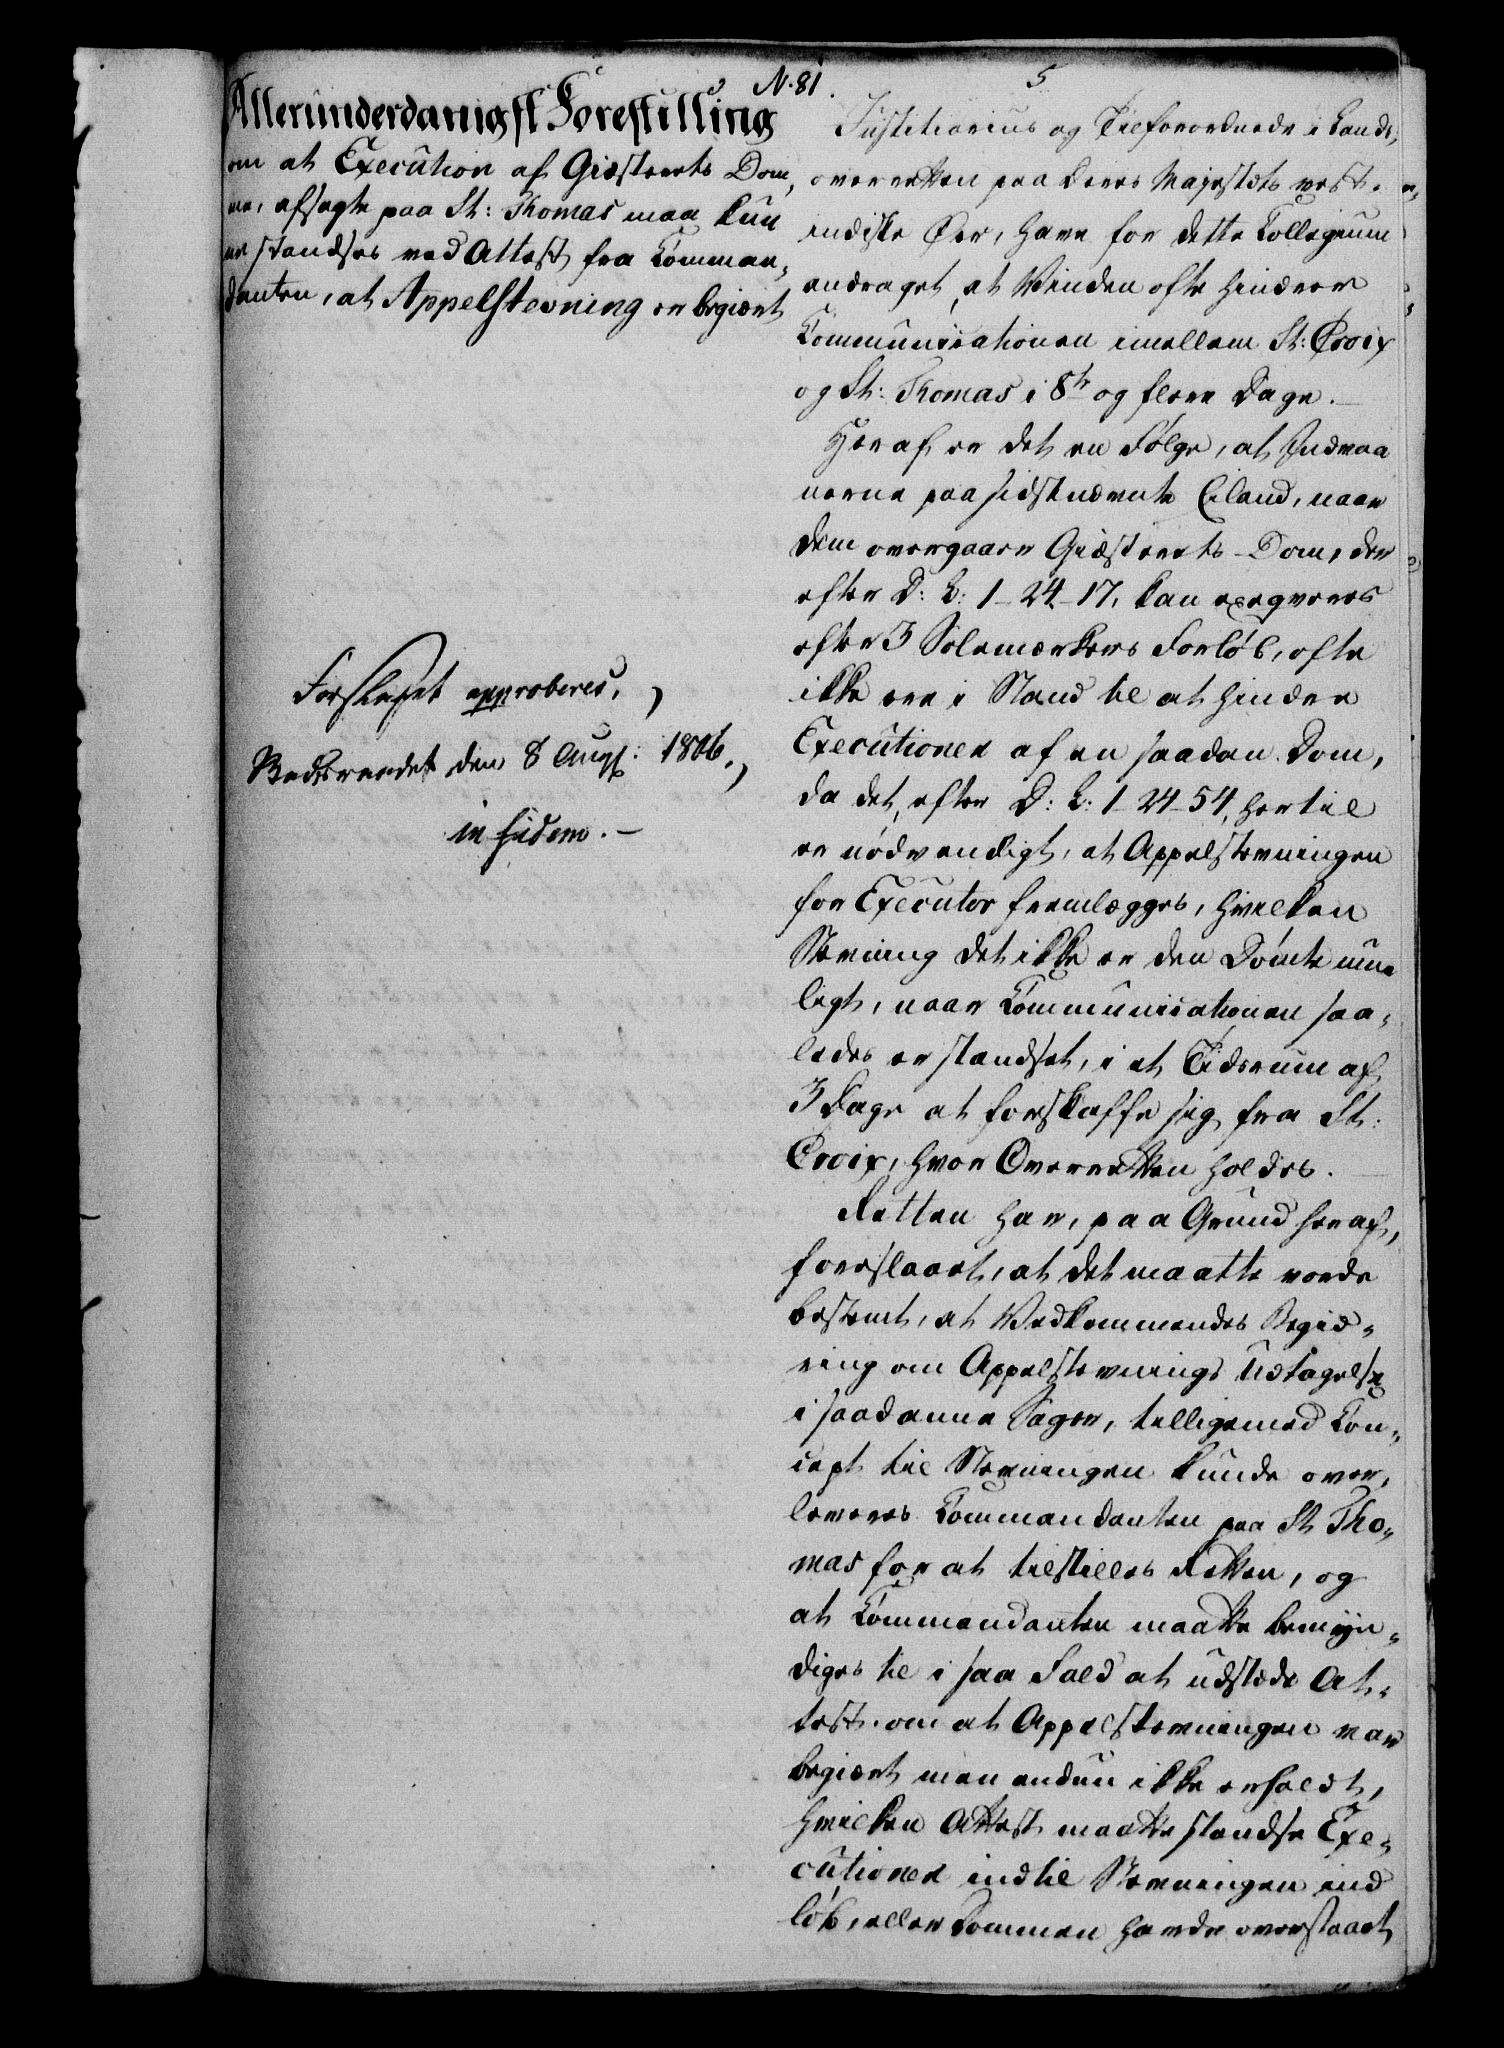 N. 81.
5
Allerunderdanigst Forestilling
om at Execution af Giæsterets Dom,
me, afsagte paa St: Thomas maa kun,
ne standses ved Attest fra Comman,
danten, at Appelstevning er begiert
Forslaget approberes.
Raadstædet den 8 Augst: 1806.
in fidem. —
Justitiarius og Tilforordnede i Lands,
overretten paa Deres Majestæts vest,
indiske Öer, have for dette Collegium
andraget, at Vinden ofte hindrer
Communicationen imellem St: Croix
og St: Thomas i 8te og flere Dage. —
Heraf er det en Følge, at Indvaa
nerne paa sidstnævnte Eiland, naar
dem overgaaer Giæsterets-Dom, der
efter D: L: 1-24-17, kan exeqveres
efter 3 Solemærkers Forløb, ofte
ikke ere i Stand til at hindre
Executionen af en saadan Dom,
da det, efter D: L: 1-24-54, hertil
er nødvendigt, at Appelstevningen
for Executor fremlægges, hvilken
Stevning det ikke er den Dömte mue
ligt, naar Communicationen saa,
ledes er standset, i et Tidsrum af
3 Dage at forskaffe sig fra St:
Croix, hvor Overretten holdes.
Retten har, paa Grund heraf,
foreslaaet, at det maatte vorde
bestemt, at Vedkommendes Begiæ,
ring om Appelstevnings Udtagelse
i saadanne Sager, tilligemed Con,
cept til Stevningen kunde over,
leveres Commandanten paa St Tho,
mas for at tilstilles Retten, og
at Commandanten maatte bemyn,
diges til i saa Fald at udstæde At,
test om at Appelstevningen var
begiert men endnu ikke erholdt,
hvilken Attest maatte standse Exe,
cutionen indtil Stevningen ind
løb, eller Dommen havde overstaaet